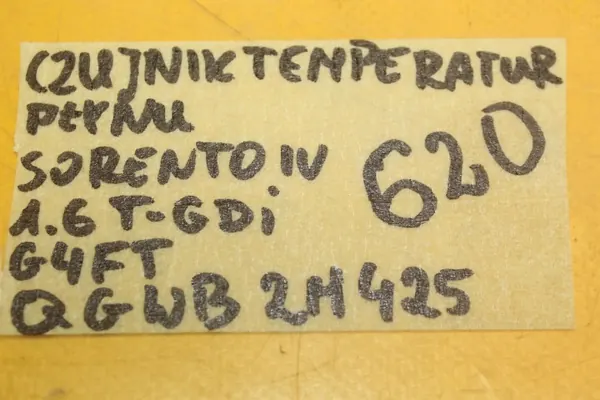 CZUJNIK TEMPERATUR
PŁYNU
SORENTO IV
1.6 T-GDi
G4FT
QGWB 2H425
620